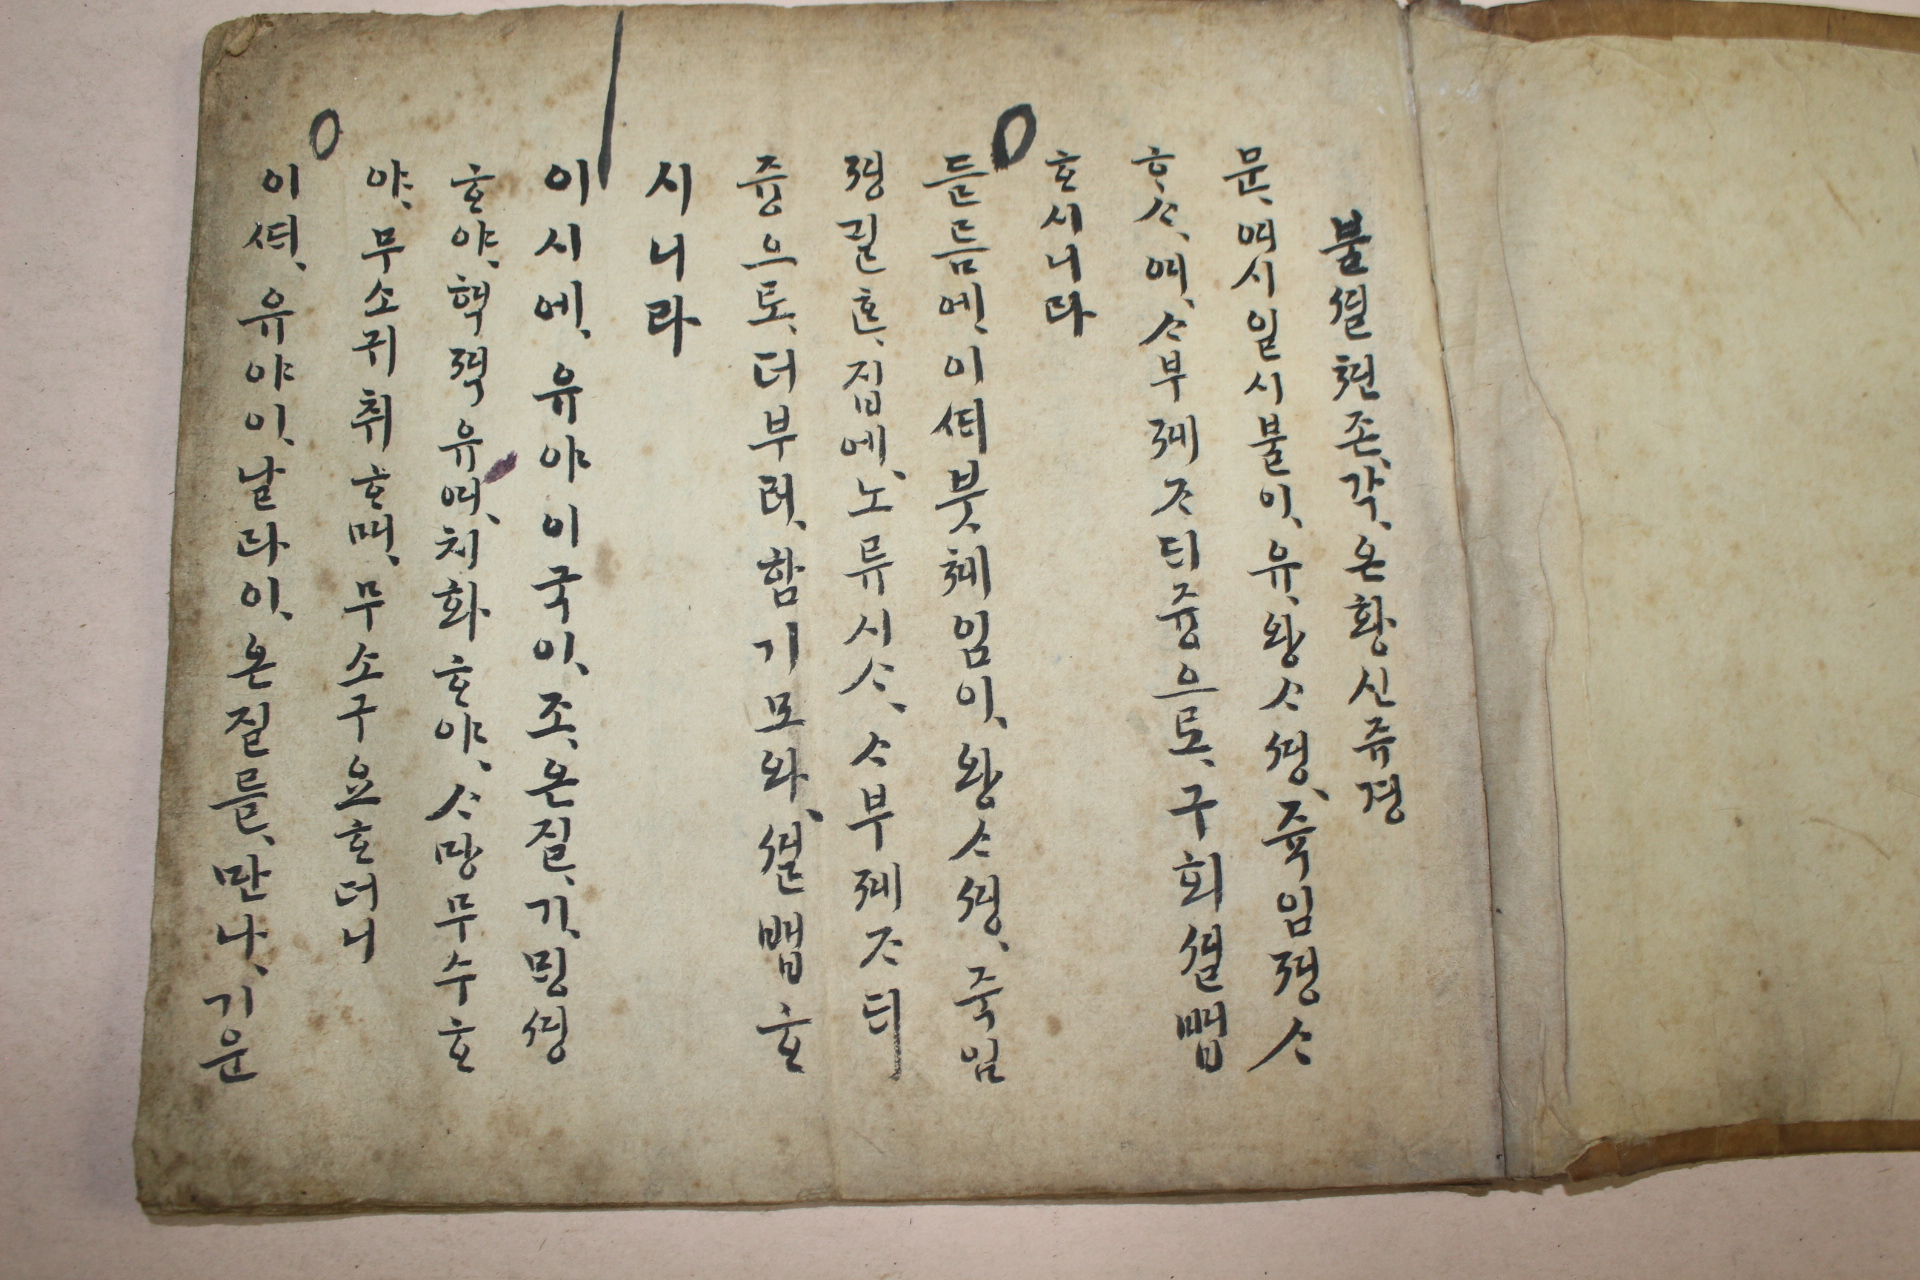 불셜쳔존, 각, 온황신쥬경
문, 여시일시불이, 유, 왕ᄉ셩, 쥭임졍ᄉ
ᄒᆞᄉ, 여, ᄉ부졔ᄌᄃᆡ즁으로, 구회셜법
ᄒᆞ시니라
듣름에, 이셔붓쳬임이, 왕ᄉ셩, 죽임
졍질ᄒᆞᆫ, 집에, 노류시ᄉ, ᄉ부졔ᄌᄃᆡ
즁으로, 더부러, 함기모와, 셜법ᄒᆞ
시니라
이시에, 유야이국이, 조, 온질, 기, 밍셩
ᄒᆞ야, 혁젹유여, 치화ᄒᆞ야, ᄉ망무수ᄒᆞ
야, 무소귀취ᄒᆞ며, 무소구요ᄒᆞ더니
이셔, 유야이, 날라이, 온질를, 만나, 기운